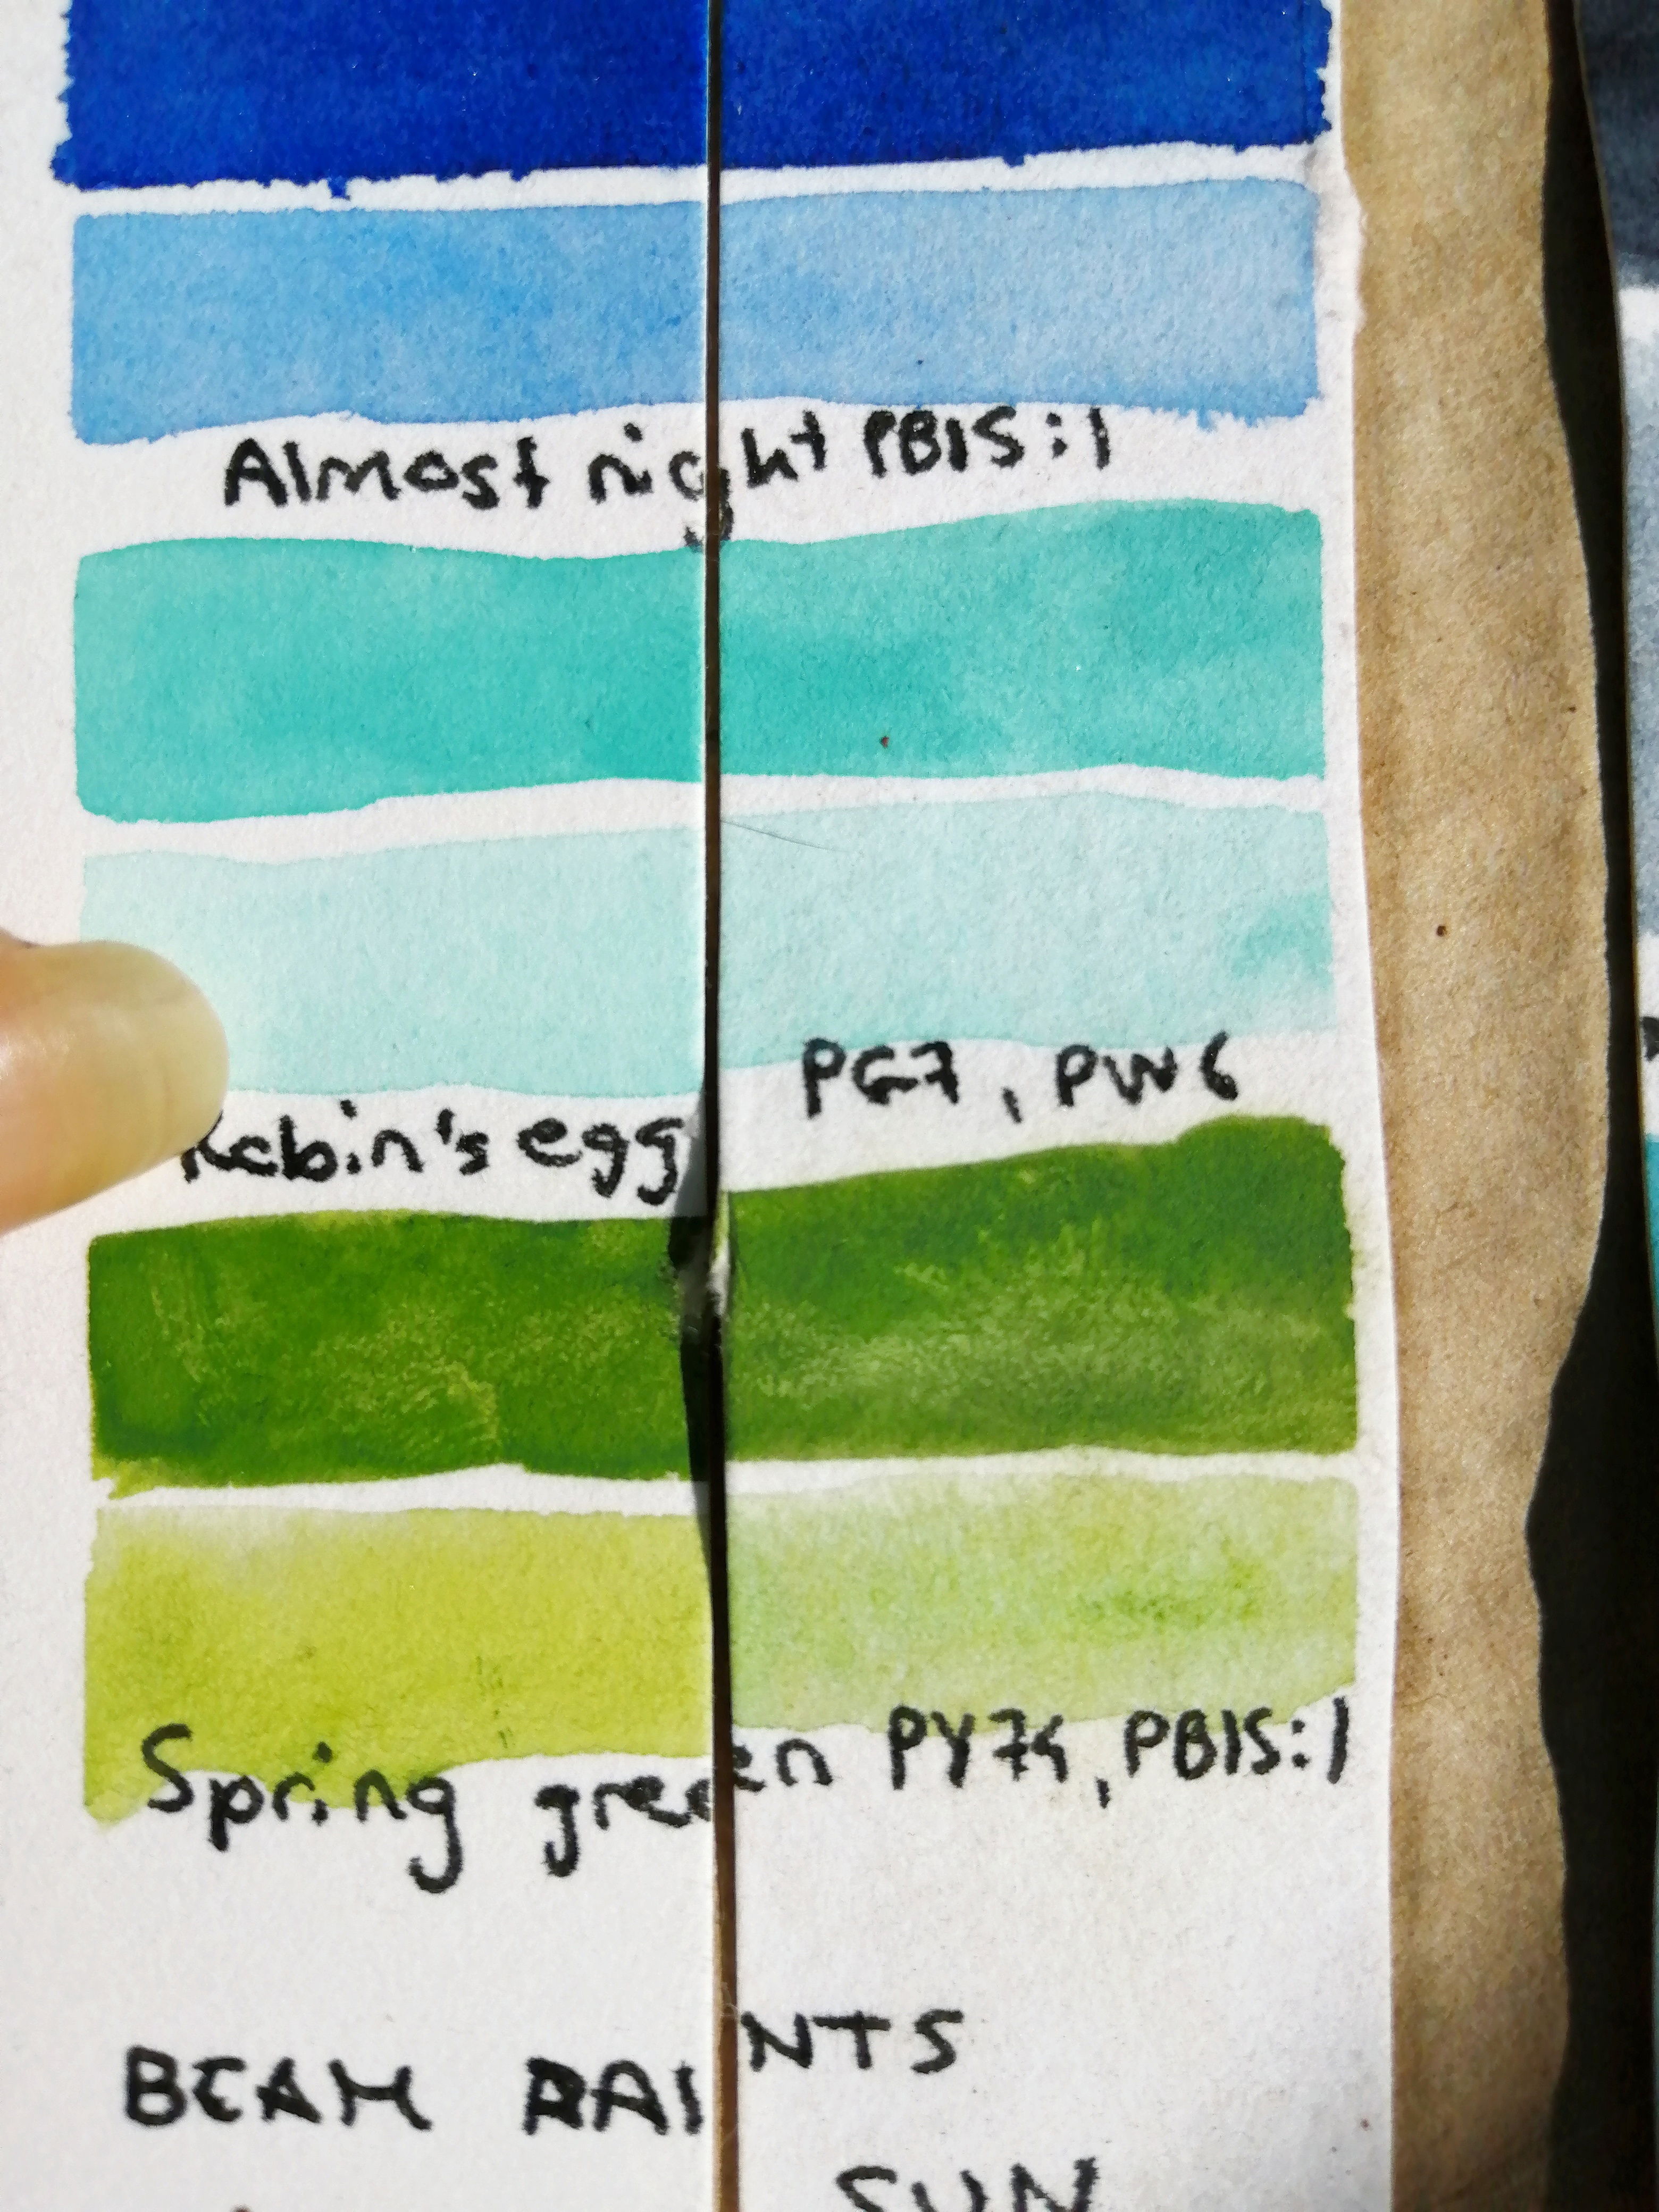 Almost night PB15:1
Robin's egg PG7, PW6
Spring green PY74, PB15:1
BEAM PAINTS
SUN